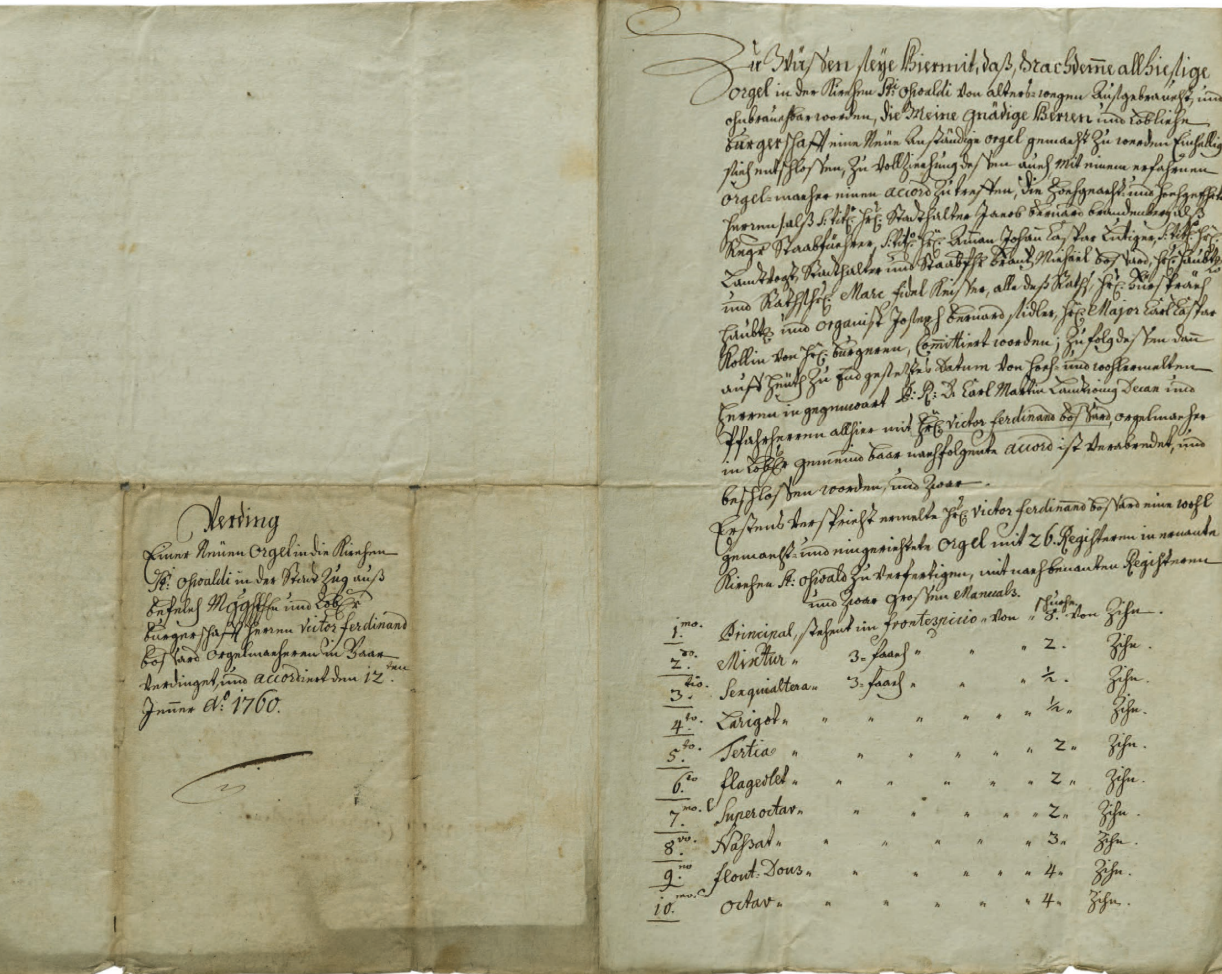 Verding
Einer Neüen Orgel in die Kirchen
St: Oswaldi in der Statt Zug auß
befelch MGghhEn und Lobl:
burgerschafft Herren Victor ferdinand
bossard Orgelmacheren in Baar
verdinget, und accordiert den 12.ten
Jenner Ao: 1760.
Zu Wüssen seye Hiermit, daß, Nachdemme allhiesige
orgel in der Kirchen St: Oswaldi von alters-wegen Außgebraucht, und
ohnbrauchbar worden, die Meine Gnädige Herren und Lobliche
burgerschafft eine Neüe Anständige orgel gemacht zu werden Einhellig
sich entschlossen, zu vollziechung dessen auch mit einem erfahrnen
orgel-macher einen accord zu treffen, die Hochgeacht- und
Herren, alß S: Tit: Hr: Stadthalter Jacob bernard brandenberg alß
Regr: Staabfüehrer, S: Tit: Hr: Aman Johan Caspar Lutiger, S: Tit: Hr:
Landtvogt, Stadthalter und frantz Michael bossard, Hr: Haubtm:
und Rathshr: Marc fidel Keisser, alle deß Raths, Hr: fürspräch
Haubtm: und Organist Joseph bernard sidler, Hr: Major Carl Caspar
Kollin von Hr: burgeren, Comittiert worden; zufolg dessen dann
auff Heüth zu End gesetztes Datum von Hoch- und wohlermelten
Herren in gegenwart P: R: D: Carl Martin Landtwing Decan und
Pfahrherren allhier mit Hr: Victor ferdinand bossard, orgelmacher
in Lobl: gemeind baar nachfolgente accord ist verabredet, und
beschlossen worden, und zwar.
Erstens verspricht ermelte Hr: Victor ferdinand bossard eine wohl
gemacht- und eingerichtete orgel mit 26. Registeren in ernante
Kirchen St: Oswald zu verfertigen, mit nachbenanten Registeren
und zwar grossen Manuals.
1.mo. Principal, stehent im frontespicio, von „ 8. schuehe von Zihn.
2.do. Mixtur „ 3-faach „ „ „ 2. Zihn.
3.tio. Sexquialtera „ 3-faach „ „ „ ½ „ Zihn.
4.to. Larigot „ „ „ „ „ „ ½ „ Zihn.
5.to. Tertia „ „ „ „ „ „ 2 „ Zihn.
6.to flageolet „ „ „ „ „ „ 2 „ Zihn.
7.mo. Superoctav „ „ „ „ „ 2 „ Zihn.
8.vo. Naßat „ „ „ „ „ „ 3 „ Zihn.
9.no flout-Doux „ „ „ „ „ „ 4 „ Zihn.
10.mo. Octav „ „ „ „ „ „ 4 „ Zihn.